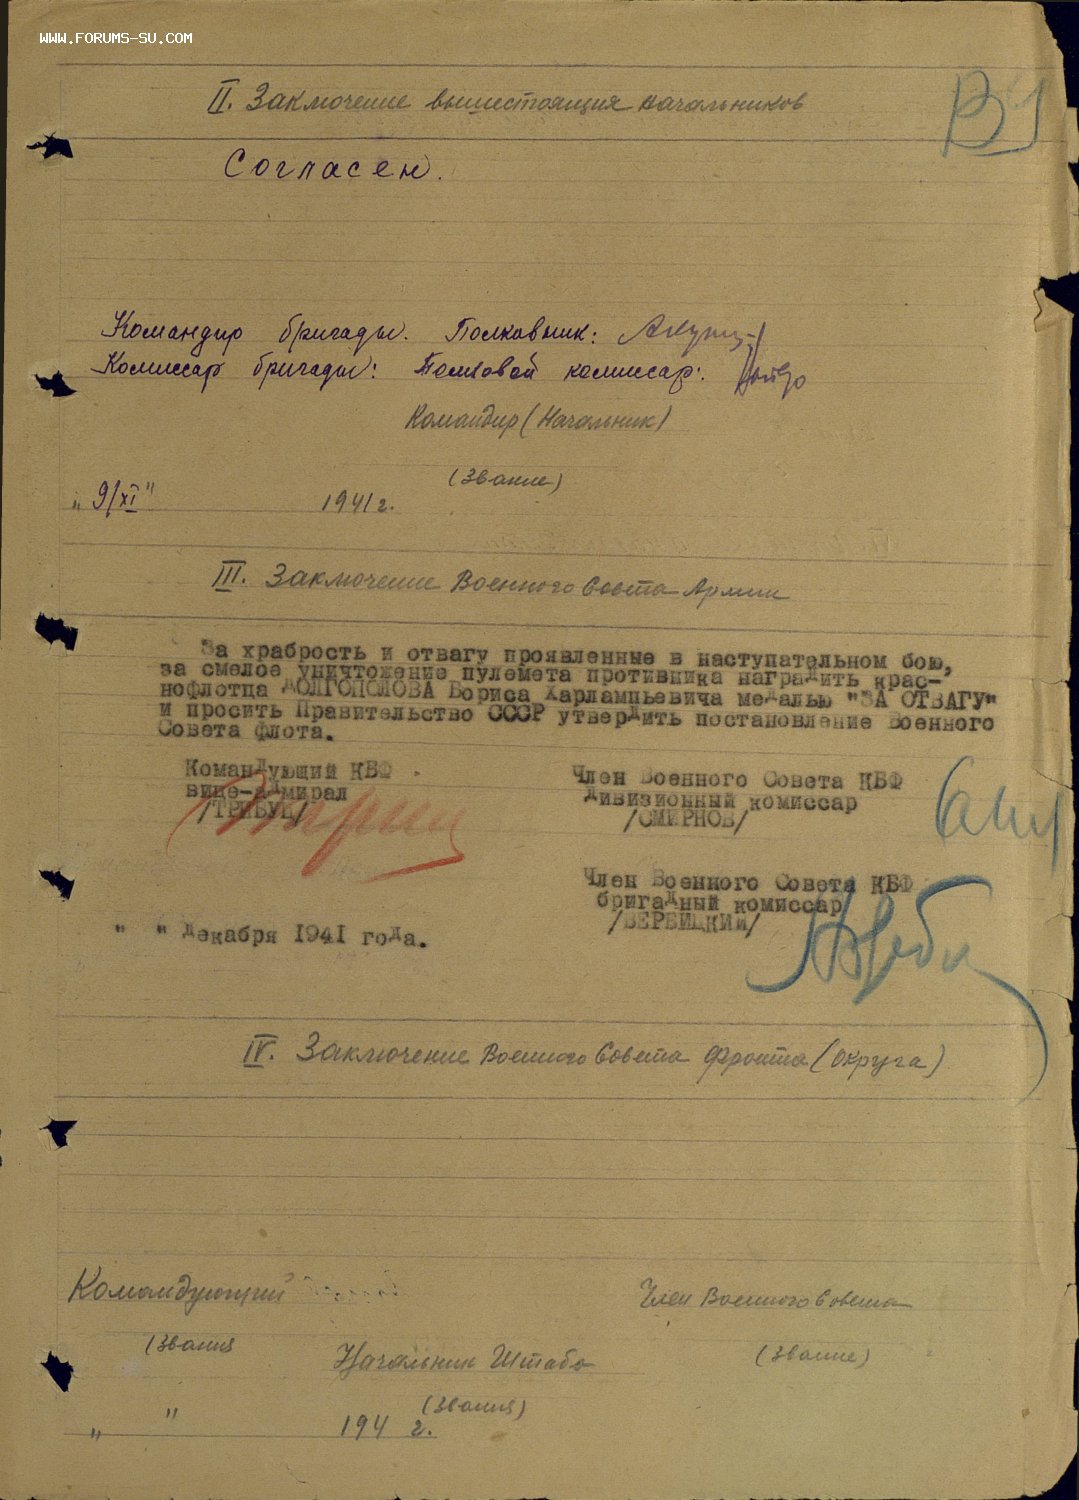 WWW.FORUMS-SU.COM
II. Заключение вышестоящих начальников
Согласен.
Командир бригады. Полковник:
Комиссар бригады: Полковой комиссар:
Командир (Начальник)
(Звание)
„ 9/XI " 1941 г.
III. Заключение Военного Совета Армии
За храбрость и отвагу проявленные в наступательном бою,
за смелое уничтожение пулемета противника наградить крас-
нофлотца ДОЛГОПОЛОВА Бориса Харлампьевича медалью "ЗА ОТВАГУ"
и просить Правительство СССР утвердить постановление Военного
Совета флота.
Командующий КБФ
вице-адмирал
/ТРИБУЦ/
Член Военного Совета КБФ
дивизионный комиссар
/СМИРНОВ/
Член Военного Совета КБФ
бригадный комиссар
/ВЕРБИЦКИЙ/
" " декабря 1941 года.
IV. Заключение Военного Совета Фронта (Округа)
Командующий
Член Военного Совета
(Звания
Начальник Штаба
(Звание)
(Звания)
„ " 194 г.